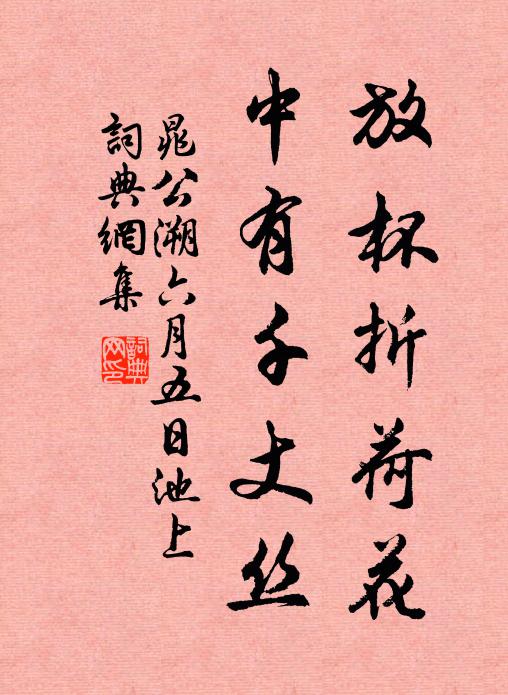 放杯折荷花
中有千丈丝
晁公溯六月五日池上
詞典網集
詞典网印